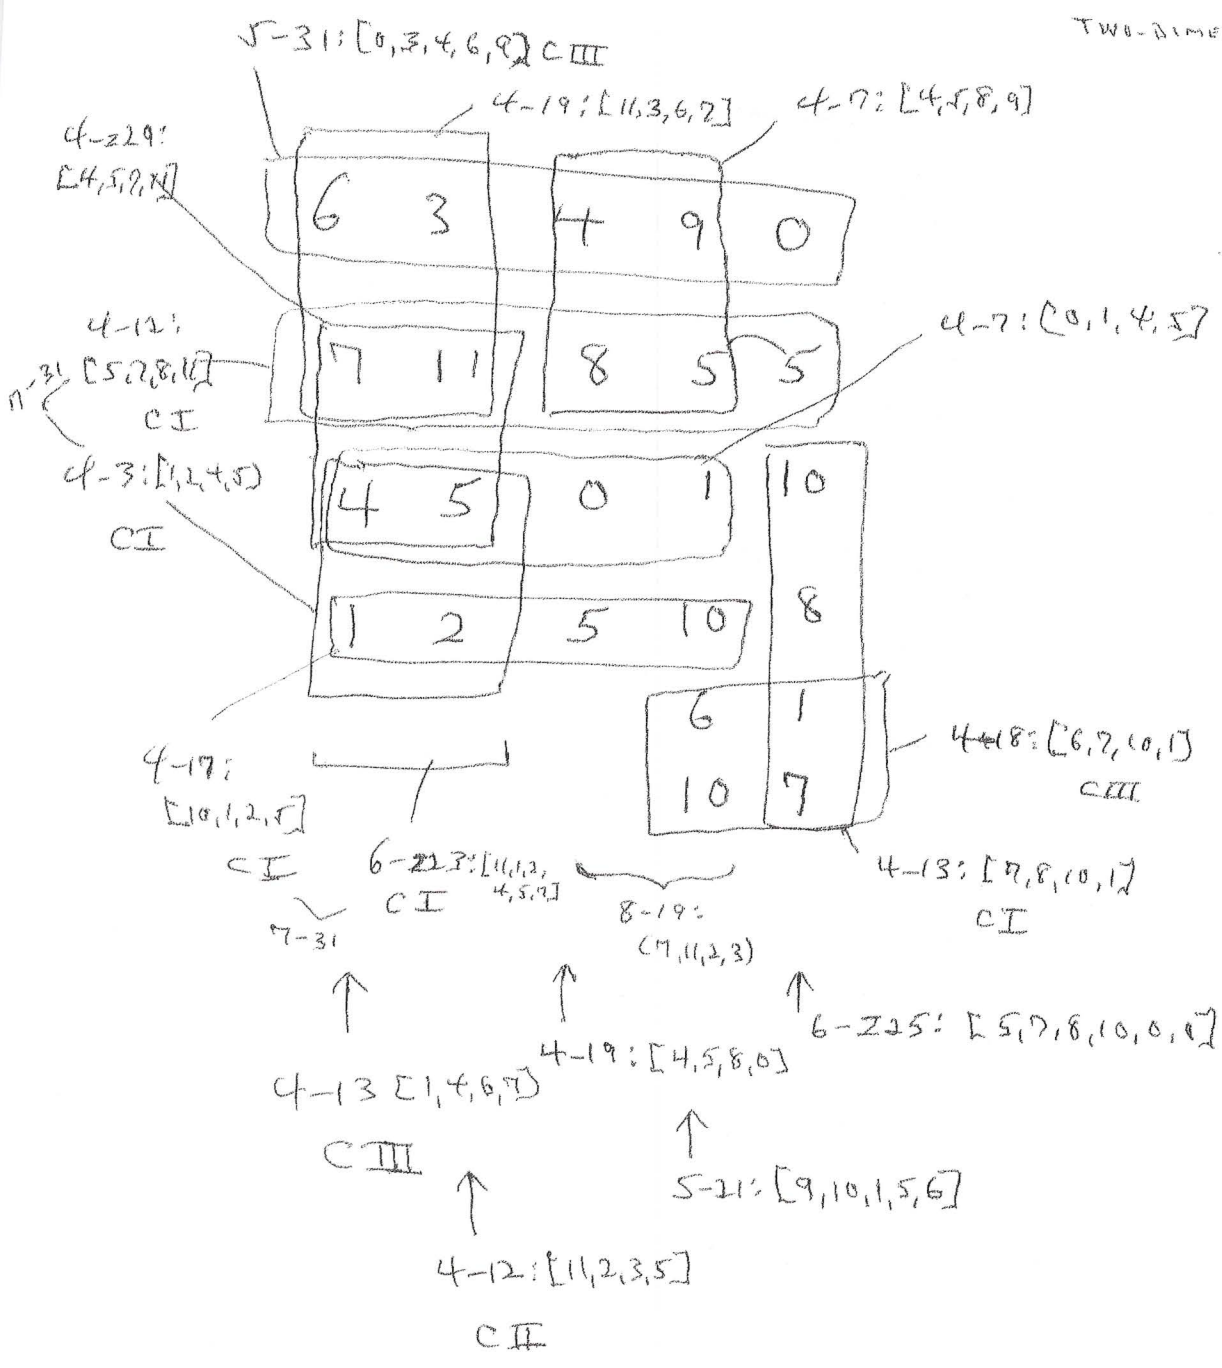 TWO-DIME
5-31: [0,3,4,6,9] CIII
4-19: [11,3,6,7]
4-7: [4,5,8,9]
4-z29:
[4,5,7,11]
6 3 4 9 0
4-12:
[5,7,8,11]
CI
7-31
7 11 8 5 5
4-7: [0,1,4,5]
4-3: [1,2,4,5]
CI
4 5 0 1 10
1 2 5 10 8
6 1
10 7
4-18: [6,7,10,1]
CIII
4-17:
[10,1,2,5]
CI
7-31
6-z23: [11,1,2,
4,5,7]
CI
8-19:
(7,11,2,3)
4-13: [7,8,10,1]
CI
6-Z25: [5,7,8,10,0,1]
4-19: [4,5,8,0]
4-13 [1,4,6,7]
CIII
5-21: [9,10,1,5,6]
4-12: [11,2,3,5]
CII